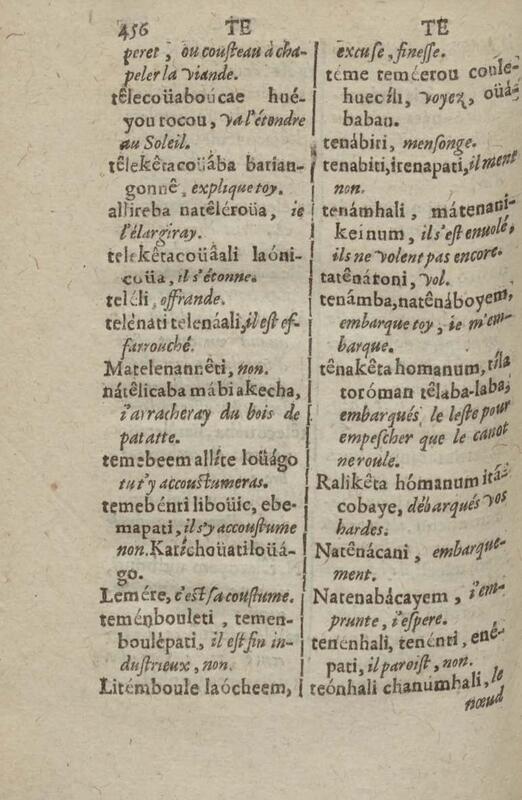 456 TE TE
peret, ou couſteau à cha-
peler la viande.
têlecoüaboúcae hué-
you tocou, va l'étendre
au Soleil.
têlekêtacoüába barian-
gonnê, explique toy.
allireba natêléroüa, ie
l'élargiray.
telekêtacoüâali laóni-
coüa, il s'étonne.
teléli, offrande.
telénati telenáali, il eſt ef-
farrouché.
Matelenannêti, non.
nátêlicaba mábiakecha,
i'arracheray du bois de
patatte.
temebeem allíte loüágo
tu t'y accouſtumeras.
temebénti liboüic, ebe-
mapati, il s'y accouſtume
non. Katíchoüatiloüá-
go.
Lemére, c'eſt ſa couſtume.
teménbouleti, temen-
boulépati, il eſt fin in-
duſtrieux, non.
Litémboule laócheem,
excuſe, fineſſe.
téme teméerou coule-
huecíli, voyez, oüá-
baban.
tenábiri, menſonge.
tenabiti, irenapati, il ment
non.
tenámhali, mátenani-
keínum, il s'eſt enuolé,
ils ne volent pas encore.
tatênátoni, vol.
tenámba, natênáboyem,
embarque toy, ie m'em-
barque.
tênakêta homanum, tíla
toróman têlaba-laba,
embarqués le leſte pour
empeſcher que le canot
ne roule.
Ralikêta hómanum itára
cobaye, débarqués vos
hardes.
Natênácani, embarque-
ment.
Natenabácayem, i'em-
prunte, i'eſpere.
tenénhali, tenénti, ené-
pati, il paroiſt, non.
teónhali chanumhali, le
nœud